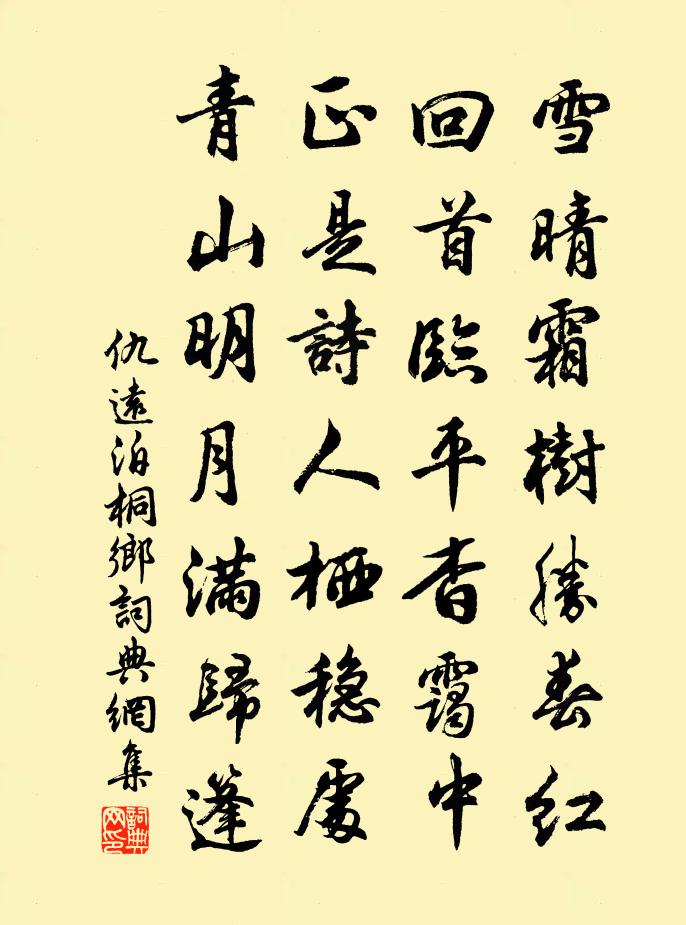 雪晴霜樹勝春紅
回首臨平杳靄中
正是詩人栖稳處
青山明月满歸篷
仇遠泊桐鄉詞典網集
詞典網印